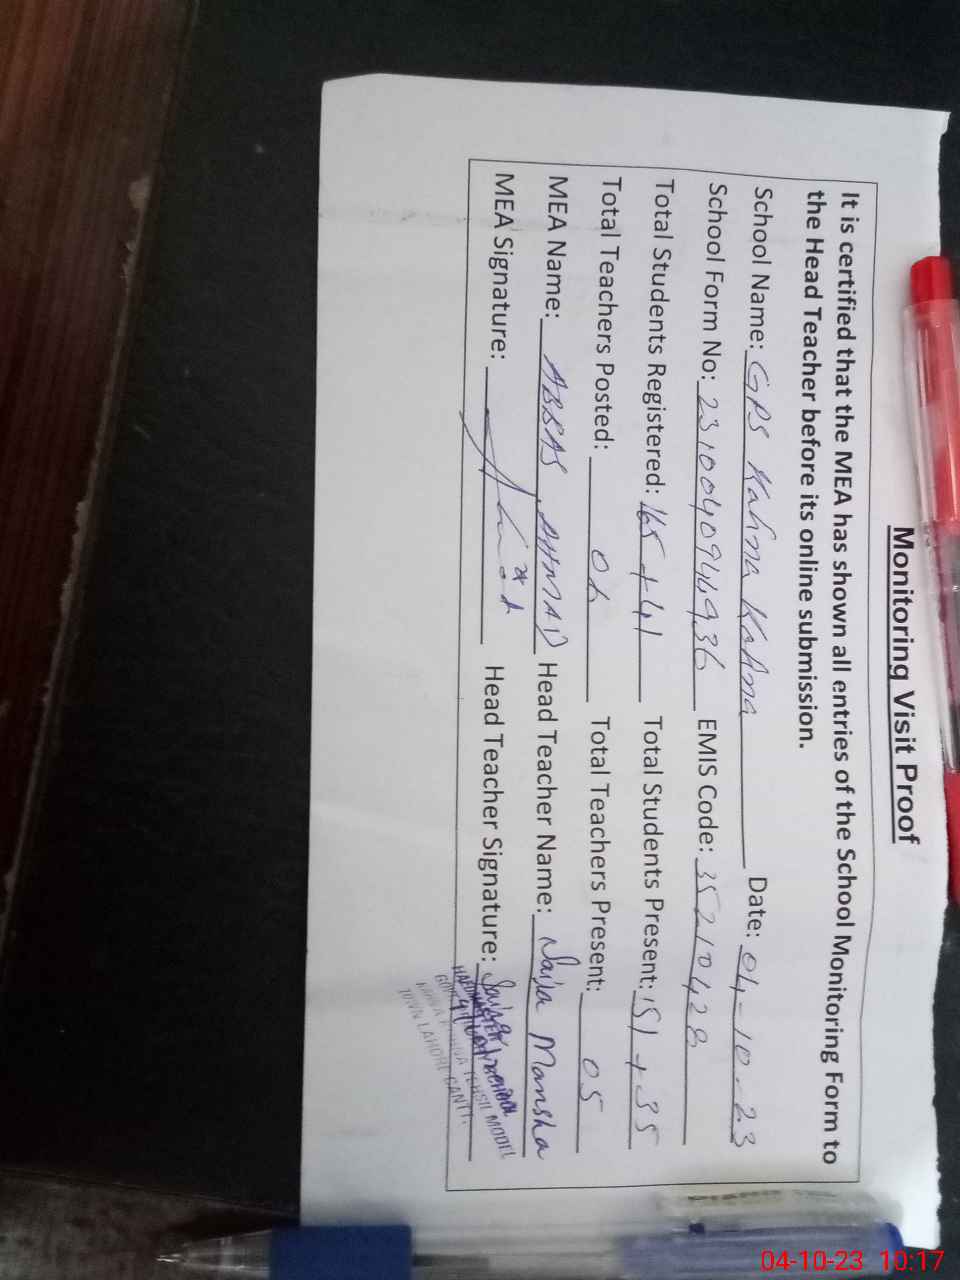 Monitoring Visit Proof
It is certified that the MEA has shown all entries of the School Monitoring Form to
the Head Teacher before its online submission.
School Name: GPS Kahna Kahna Date: 04-10-23
School Form No: EMIS Code: 35210428
Total Students Registered: 165 + 41 Total Students Present: 151 + 35
Total Teachers Posted: Total Teachers Present: 05
MEA Name: ABBAS AHMAD Head Teacher Name: Naila Mansha
MEA Signature: Head Teacher Signature:
TEHSIL MODEL
TOWN LAHORE CANTT.
04-10-23 10:17